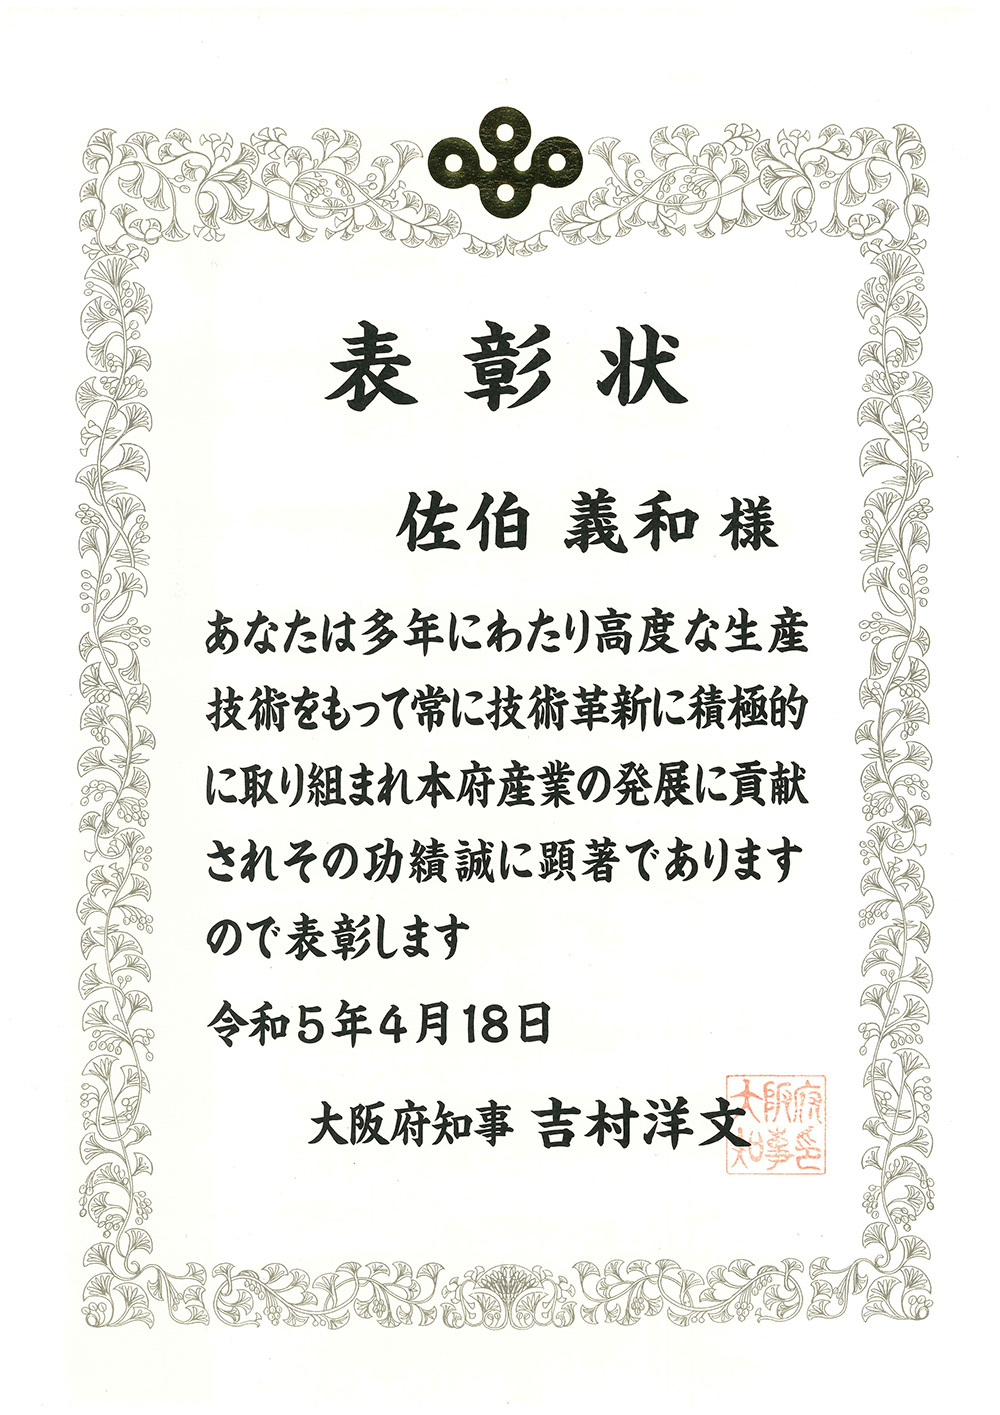 表彰状
佐伯 義和 様
あなたは多年にわたり高度な生産
技術をもって常に技術革新に積極的
に取り組まれ本府産業の発展に貢献
されその功績誠に顕著であります
ので表彰します
令和5年4月18日
大阪府知事 吉村洋文
大阪府
知事印